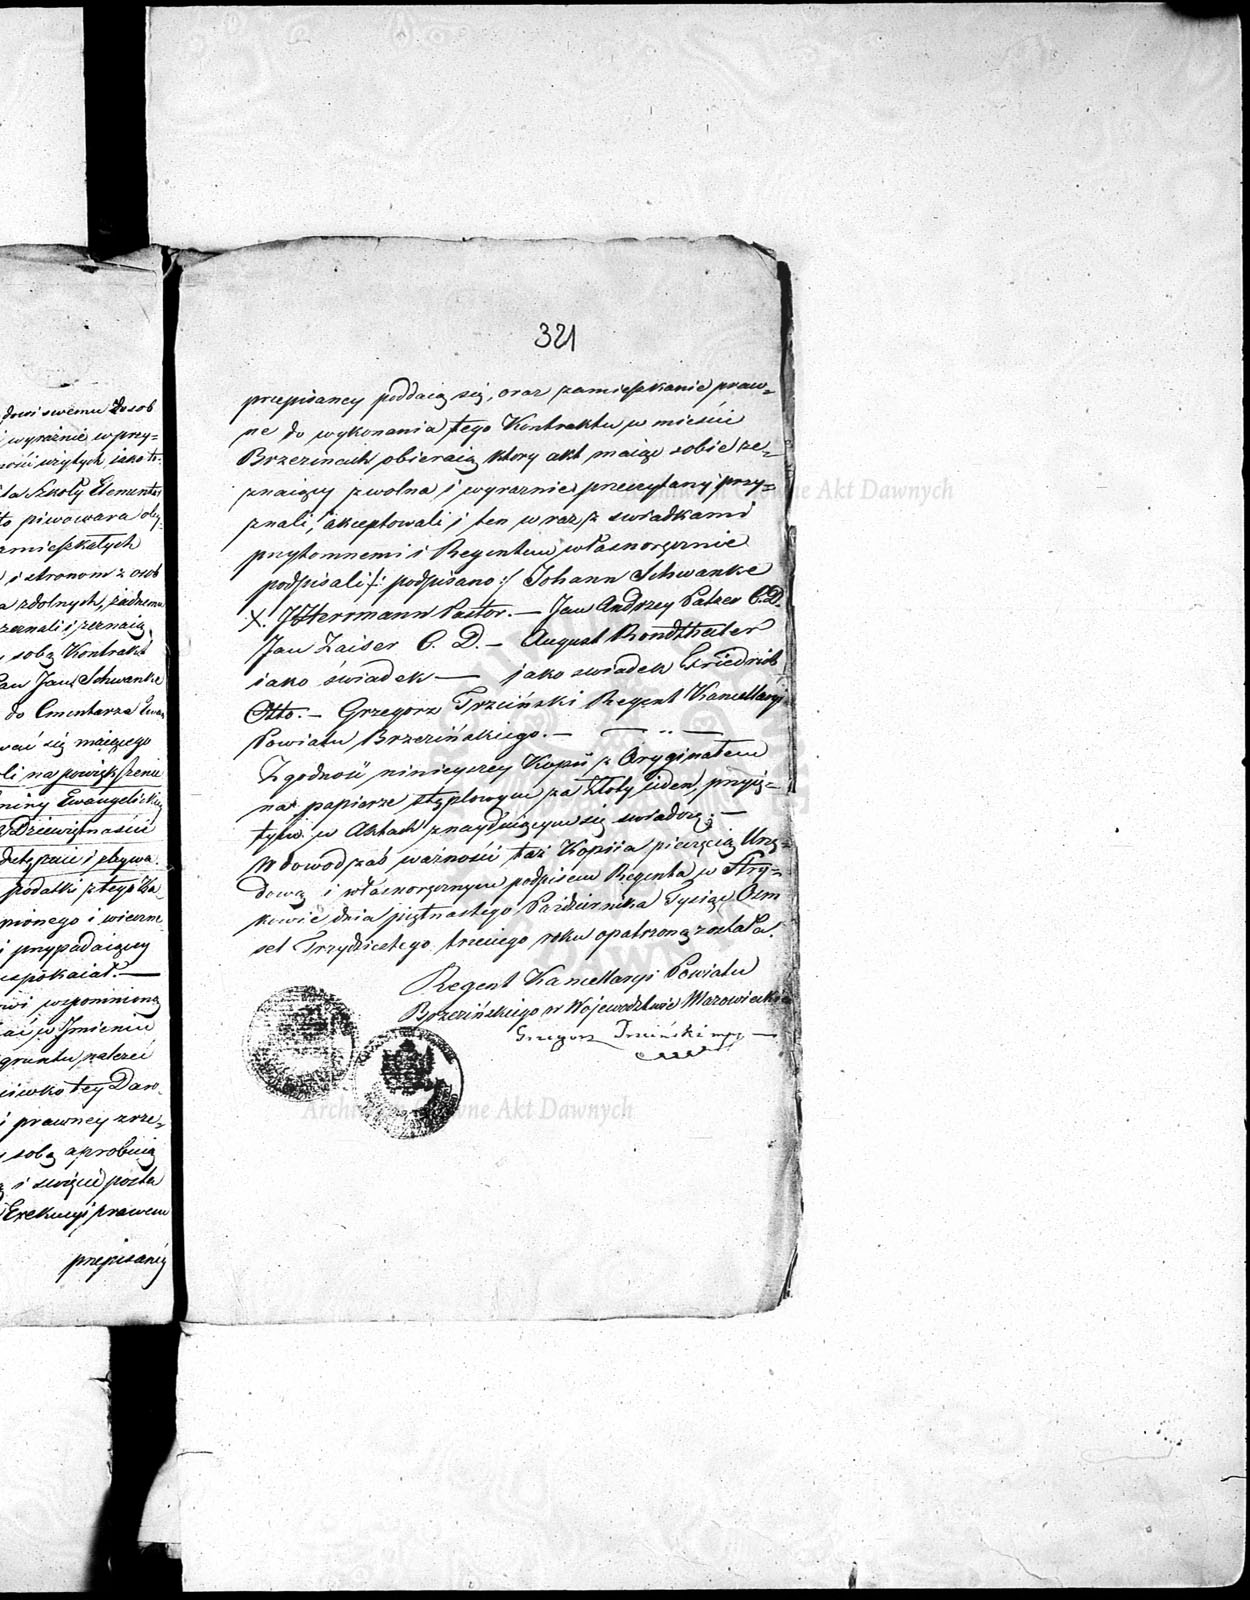 dowi swemu
wyraźnie w przy=
ności użytych iako te=
ta Szkoły Elementar
to piwowara oby
zamieszkałych
i stronom z osob
a zdolnych, żadnemu
zeznali i zeznaią,
sobą Kontrakt
Pan Jan Schwanke
do Cmentarza Ewan
wać się maiącego
li na powiększenie
miny Ewangelickiey
Dziewiętnaście
i ubywa
podatki z tego Za
pionego i wieczne
i przypadaiący
uspokaiał. —
wspomnioną
w Jmieniu
gruntu należeć
tey Daro
i prawney zrze=
sobą aprobuią
i swoięci posta
Exekucyi prawem
przepisaney
321
przepisaney poddaią się, oraz zamieszkanie praw=
ne do wykonania tego Kontraktu w mieście
Brzezinach obieraią, ktory akt maiąc sobie ze=
znaiący zwolna i wyraznie przeczytany przy=
znali, akceptowali i ten wraz z swiadkami
przytomnemi i Regentem własnoręcznie
podpisali /: podpisano :/ Johann Schwanke
X. J Herrmann Pastor. — Jan Andrzey Patzer C. D.
Jan Zaiser C. D. — August Rondthaler
iako świadek — jako swiadek Friedrich
Otto. — Grzegorz Trzciński Regent Kancellaryi
Powiatu Brzezińskiego. — — „ —
Zgodność ninieyszey Kopii z Oryginałem
na papierze stęplowym za złoty ieden, przyię=
tym w Aktach znayduiącym się swiadczę. —
W dowod zaś ważności taż Kopiia pieczęcią Urzę=
dową i własnoręcznym podpisem Regenta w Stry=
kowie dnia piętnastego Pazdziernika Tysiąc Osm
set Trzydziestego trzeciego roku opatrzoną została.
Regent Kancellaryi Powiatu
Brzezińskiego w Wojewodztwie Mazowieckim
Grzegorz Trzciński mpp —
Archiwum Główne Akt Dawnych
Archiwum Główne Akt Dawnych